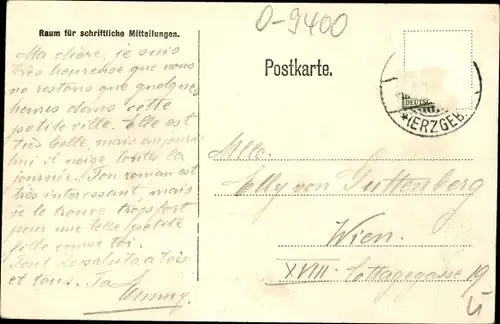 O-9400
Raum für schriftliche Mitteilungen.
Postkarte.
DEUTSC
*(ERZGEB.
Ma chère, je suis
très heureuse que nous
ne restons que quelques
heures dans cette
petite ville. Elle est
très belle, mais aujourd
hui il neige toute la
journée. Ton roman est
très interessant, mais
je le trouve trop fort
pour une telle petite
fille comme toi.
Tant de saluts, à toi
et tous. Ta
Mlle.
Elly von Guttenberg
Wien.
XVIII. Cottagegasse 19